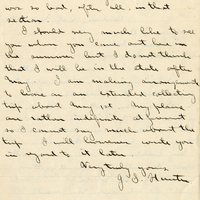 was so bad, after all, in that
section.
I should very much like to see
you when you come out here in
the summer but I do not think
that I will be in the state after
May. I am making arrangements
to leave on an extended collecting
trip about May 1st. My plans
are rather indefinite at present
so I cannot say much about the
trip. I will however write you
in regard to it later.
Very truly yours,
G. I. Hunter